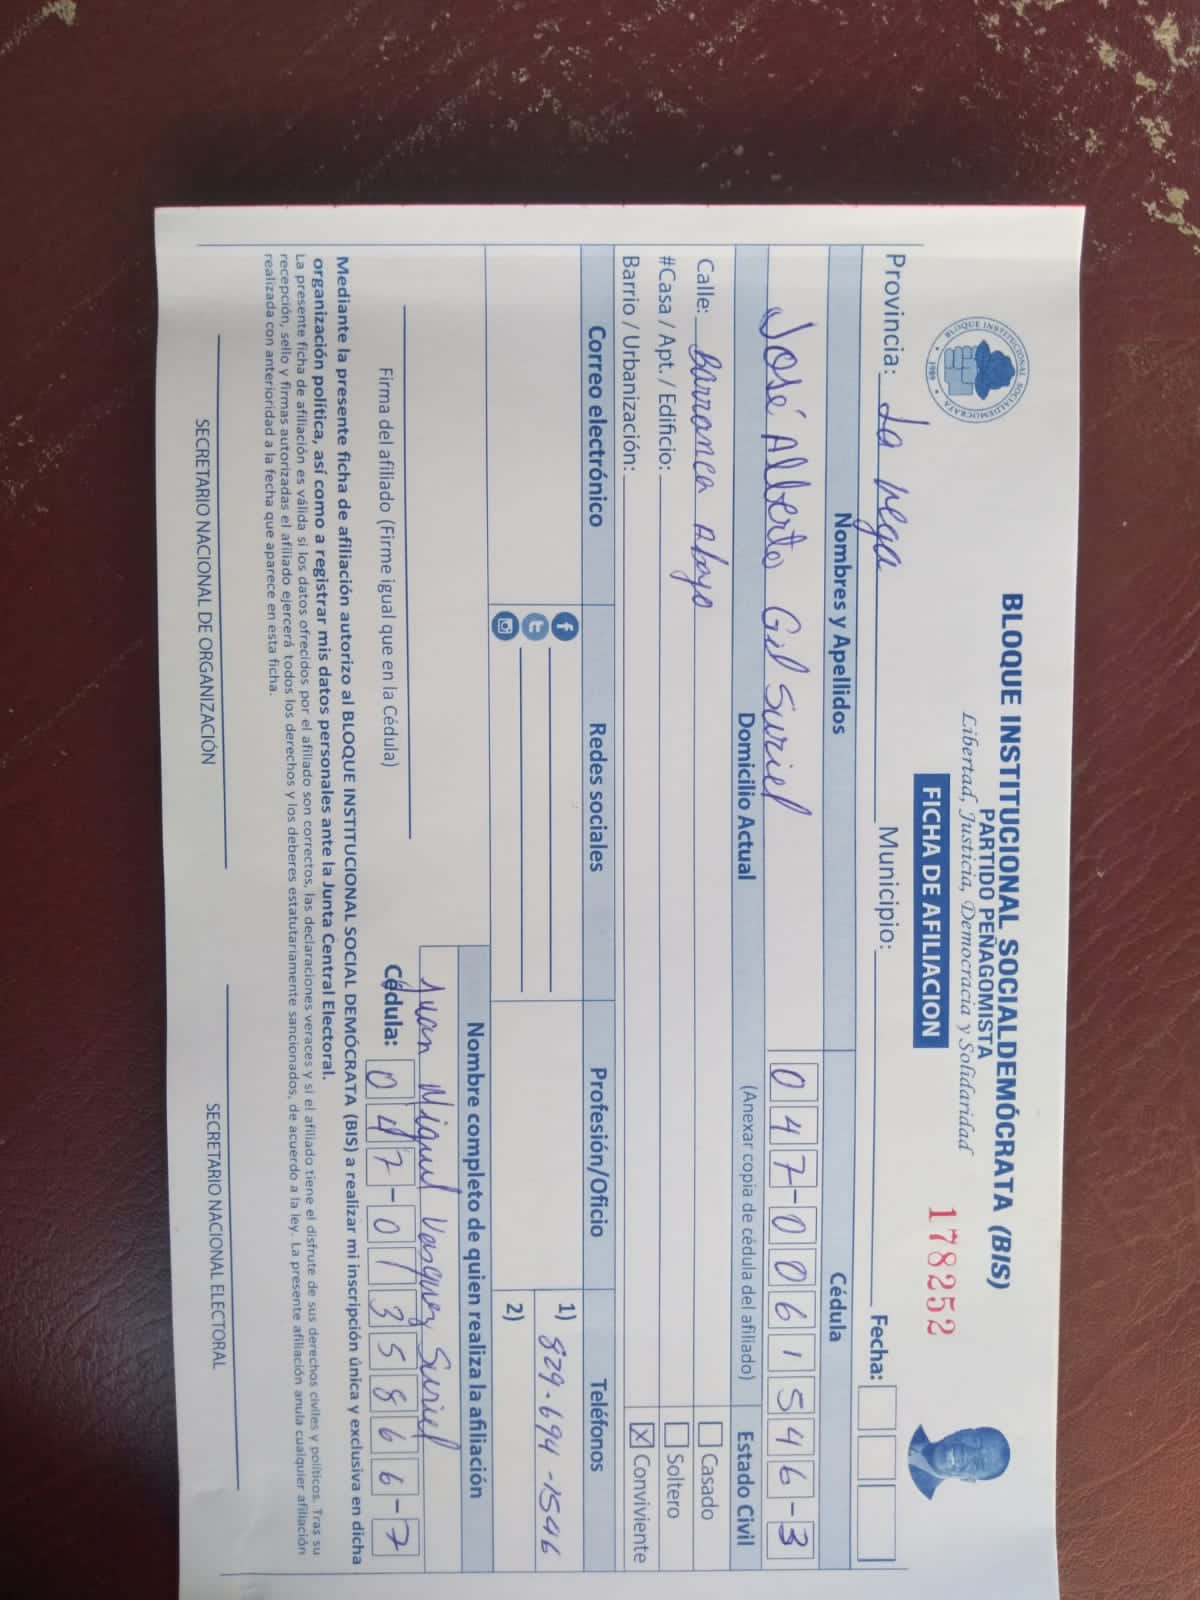 BLOQUE INSTITUCIONAL SOCIALDEMÓCRATA (BIS)
PARTIDO PEÑAGOMISTA
Libertad, Justicia, Democracia y Solidaridad
178252
FICHA DE AFILIACION
BLOQUE INSTITUCIONAL SOCIALDEMOCRATA
1989
Provincia: La Vega Municipio: Fecha:
Nombres y Apellidos Cédula
José Alberto Gil Suriel 047-0061546-3
Domicilio Actual (Anexar copia de cédula del afiliado) Estado Civil
Calle: Barranca Abajo Casado
#Casa / Apt. / Edificio: Soltero
Barrio / Urbanización: X Conviviente
Correo electrónico Redes sociales Profesión/Oficio Teléfonos
1) 829-694-1546
2)
Nombre completo de quien realiza la afiliación
Juan Miguel Vasquez Suriel
Cédula: 047-0135866-7
Firma del afiliado (Firme igual que en la Cédula)
Mediante la presente ficha de afiliación autorizo al BLOQUE INSTITUCIONAL SOCIAL DEMÓCRATA (BIS) a realizar mi inscripción única y exclusiva en dicha
organización política, así como a registrar mis datos personales ante la Junta Central Electoral.
La presente ficha de afiliación es válida si los datos ofrecidos por el afiliado son correctos, las declaraciones veraces y si el afiliado tiene el disfrute de sus derechos civiles y políticos. Tras su
recepción, sello y firmas autorizadas el afiliado ejercerá todos los derechos y los deberes estatutariamente sancionados, de acuerdo a la ley. La presente afiliación anula cualquier afiliación
realizada con anterioridad a la fecha que aparece en esta ficha.
SECRETARIO NACIONAL DE ORGANIZACIÓN SECRETARIO NACIONAL ELECTORAL